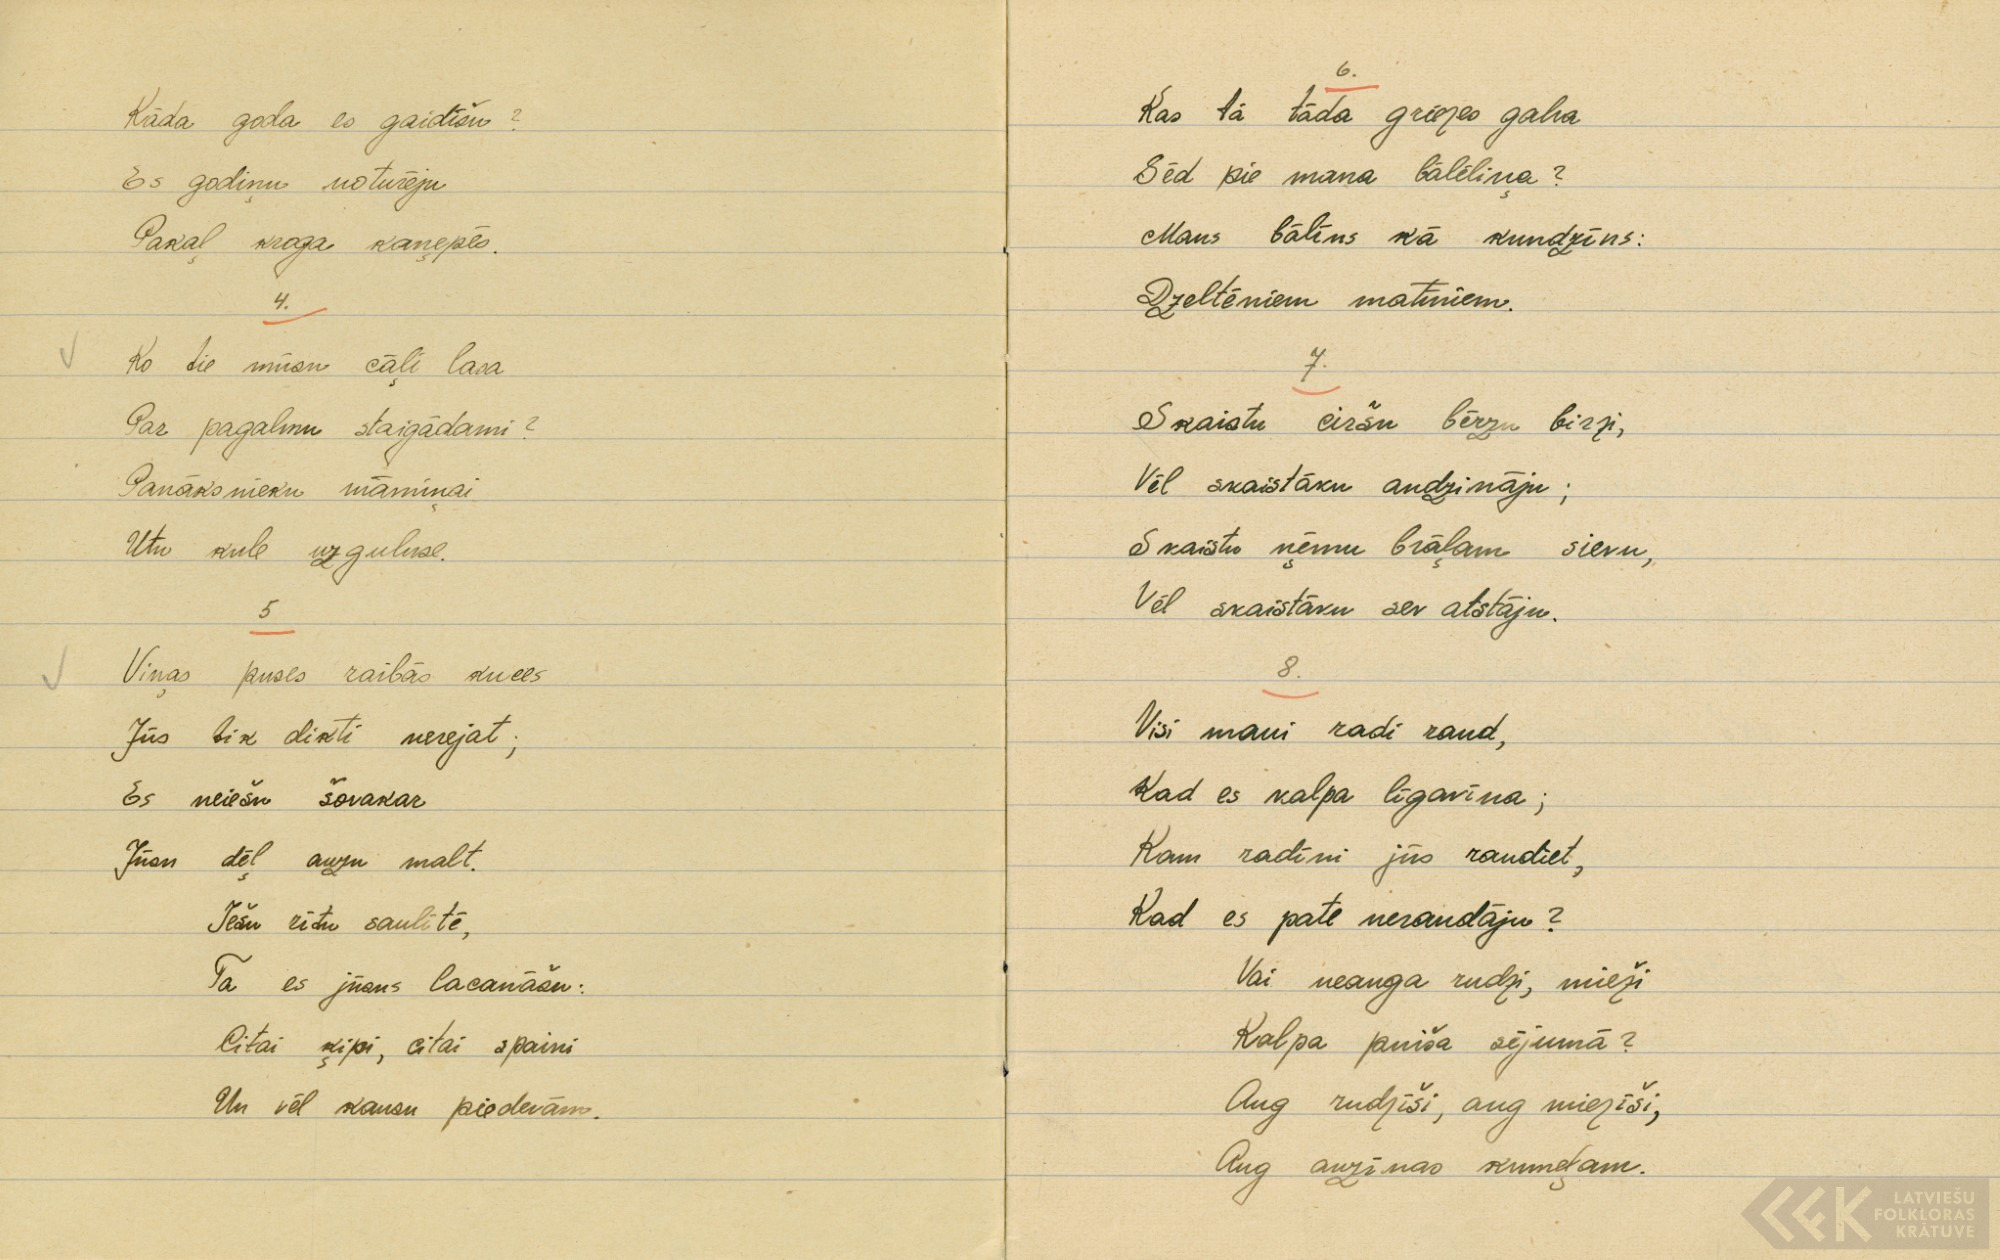 Kāda goda es gaidīšu?
Es godiņu noturēju
Pakaļ kroga kaņepēs.
4.
Ko tie mūsu cāļi lasa
Par pagalmu staigādami?
Panāksnieku māmiņai
Utu kule uzgulusē.
5
Viņas puses raibās kuces
Jūs tik dikti nerejat;
Es neiešu šovakar
Jūsu dēļ auzu malt.
Iešu rītu saulītē,
Ta es jūsus lacanāšu:
Citai ķipi, citai spaini
Un vēl kausu piedevām.
6.
Kas tā tāda griezes galva
Sēd pie mana bālēliņa?
Mans bāliņs kā kundziņs:
Dzelteniem matiņiem.
7.
Skaistu ciršu bērzu birzi,
Vēl skaistāku audzināju;
Skaistu ņēmu brāļam sievu,
Vēl skaistāku sev atstāju.
8.
Visi mani radi raud,
Kad es kalpa līgaviņa;
Kam radiņi jūs raudiet,
Kad es pate neraudāju?
Vai neauga rudzi, mieži
Kalpa puiša sējumā?
Aug rudzīši, aug miezīši,
Aug auziņas kumeļam.
LATVIEŠU
FOLKLORAS
KRĀTUVE